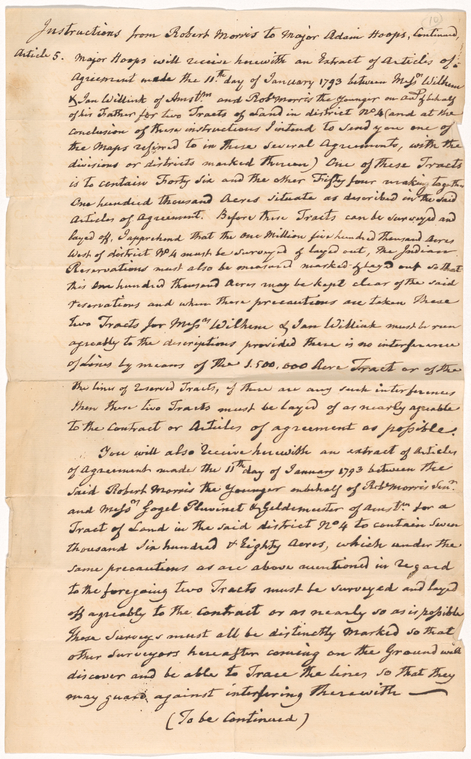 (10)
Instructions from Robert Morris to Major Adam Hoops, Continued,
Article 5. Major Hoops will receive herewith an Extract of Articles of
Agreement made the 11th day of January 1793 between Messrs Wilhem
& Jan Willink of Amstm and Robt Morris the Younger on & behalf
of his Father for two Tracts of Land in district No 4 (and at the
conclusion of these instructions I intend to send you one of
the Maps referred to in these several Agreements, with the
divisions or districts marked thereon) One of these Tracts
is to contain Forty Six and the other Fifty four making together
One hundred thousand Acres Situate as described in the said
Articles of Agreement. Before these Tracts can be surveyed and
layed off, I apprehend that the One Million five hundred thousand Acres
West of district No 4 must be surveyed & layed out, the Indian
Reservations must also be measured marked & layed out so that
this One hundred thousand Acres may be kept clear of the said
reservations and when these precautions are taken these
two Tracts for Messrs Wilhem & Jan Willink must be run
agreably to the descriptions provided there is no interference
of Lines by means of the 1.500,000 Acre Tract or of the
the lines of reserved Tracts, if there are any such interferences
then these two Tracts must be layed of as nearly agreable
to the Contract or Articles of agreement as possible.
You will also receive herewith an extract of Articles
of Agreement made the 11th day of January 1793 between the
said Robert Morris the Younger on behalf of Robt Morris Senr
and Messrs Gogel Pluvinet & Geldemeester of Amstm for a
Tract of Land in the said district No 4 to contain Seven
thousand Six hundred & Eighty Acres, which under the
same precautions as are above mentioned in regard
to the foregoing two Tracts must be surveyed and layed
off agreably to the Contract or as nearly so as is possible
these surveys must all be distinctly marked so that
other surveyors hereafter coming on the Ground will
discover and be able to Trace the lines so that they
may guard against interfering therewith —
(To be Continued)